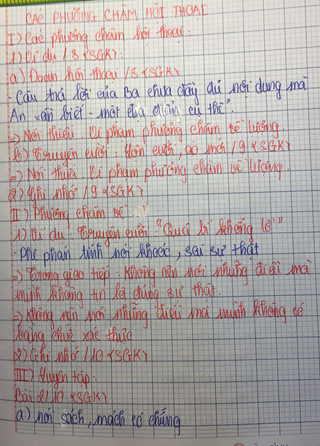 CÁC PHƯƠNG CHÂM HỘI THOẠI
I) Các phương châm hội thoại.
1) Ví dụ / 8 <SGK>
a) Đoạn hội thoại / 8 <SGK>
- Câu trả lời của Ba chưa đầy đủ nội dung mà
An cần biết - một địa điểm cụ thể".
=> Nói thiếu. Vi phạm phương châm về lượng.
b) Truyện cười: lợn cưới, áo mới / 9 <SGK>
=> Nói thừa. Vi phạm phương châm về lượng.
2) Ghi nhớ / 9 <SGK>
II) Phương châm về
1) Ví dụ: Truyện cười "Quả bí khổng lồ"
- Phê phán tính nói khoác, sai sự thật
=> Trong giao tiếp. Không nên nói những điều mà
mình không tin là đúng sự thật.
=> Không nên nói những điều mà mình không có
bằng chứng xác thực
2) Ghi nhớ / 10 <SGK>
III) Luyện tập.
Bài 2/10 <SGK>
a) nói sách, mách có chứng